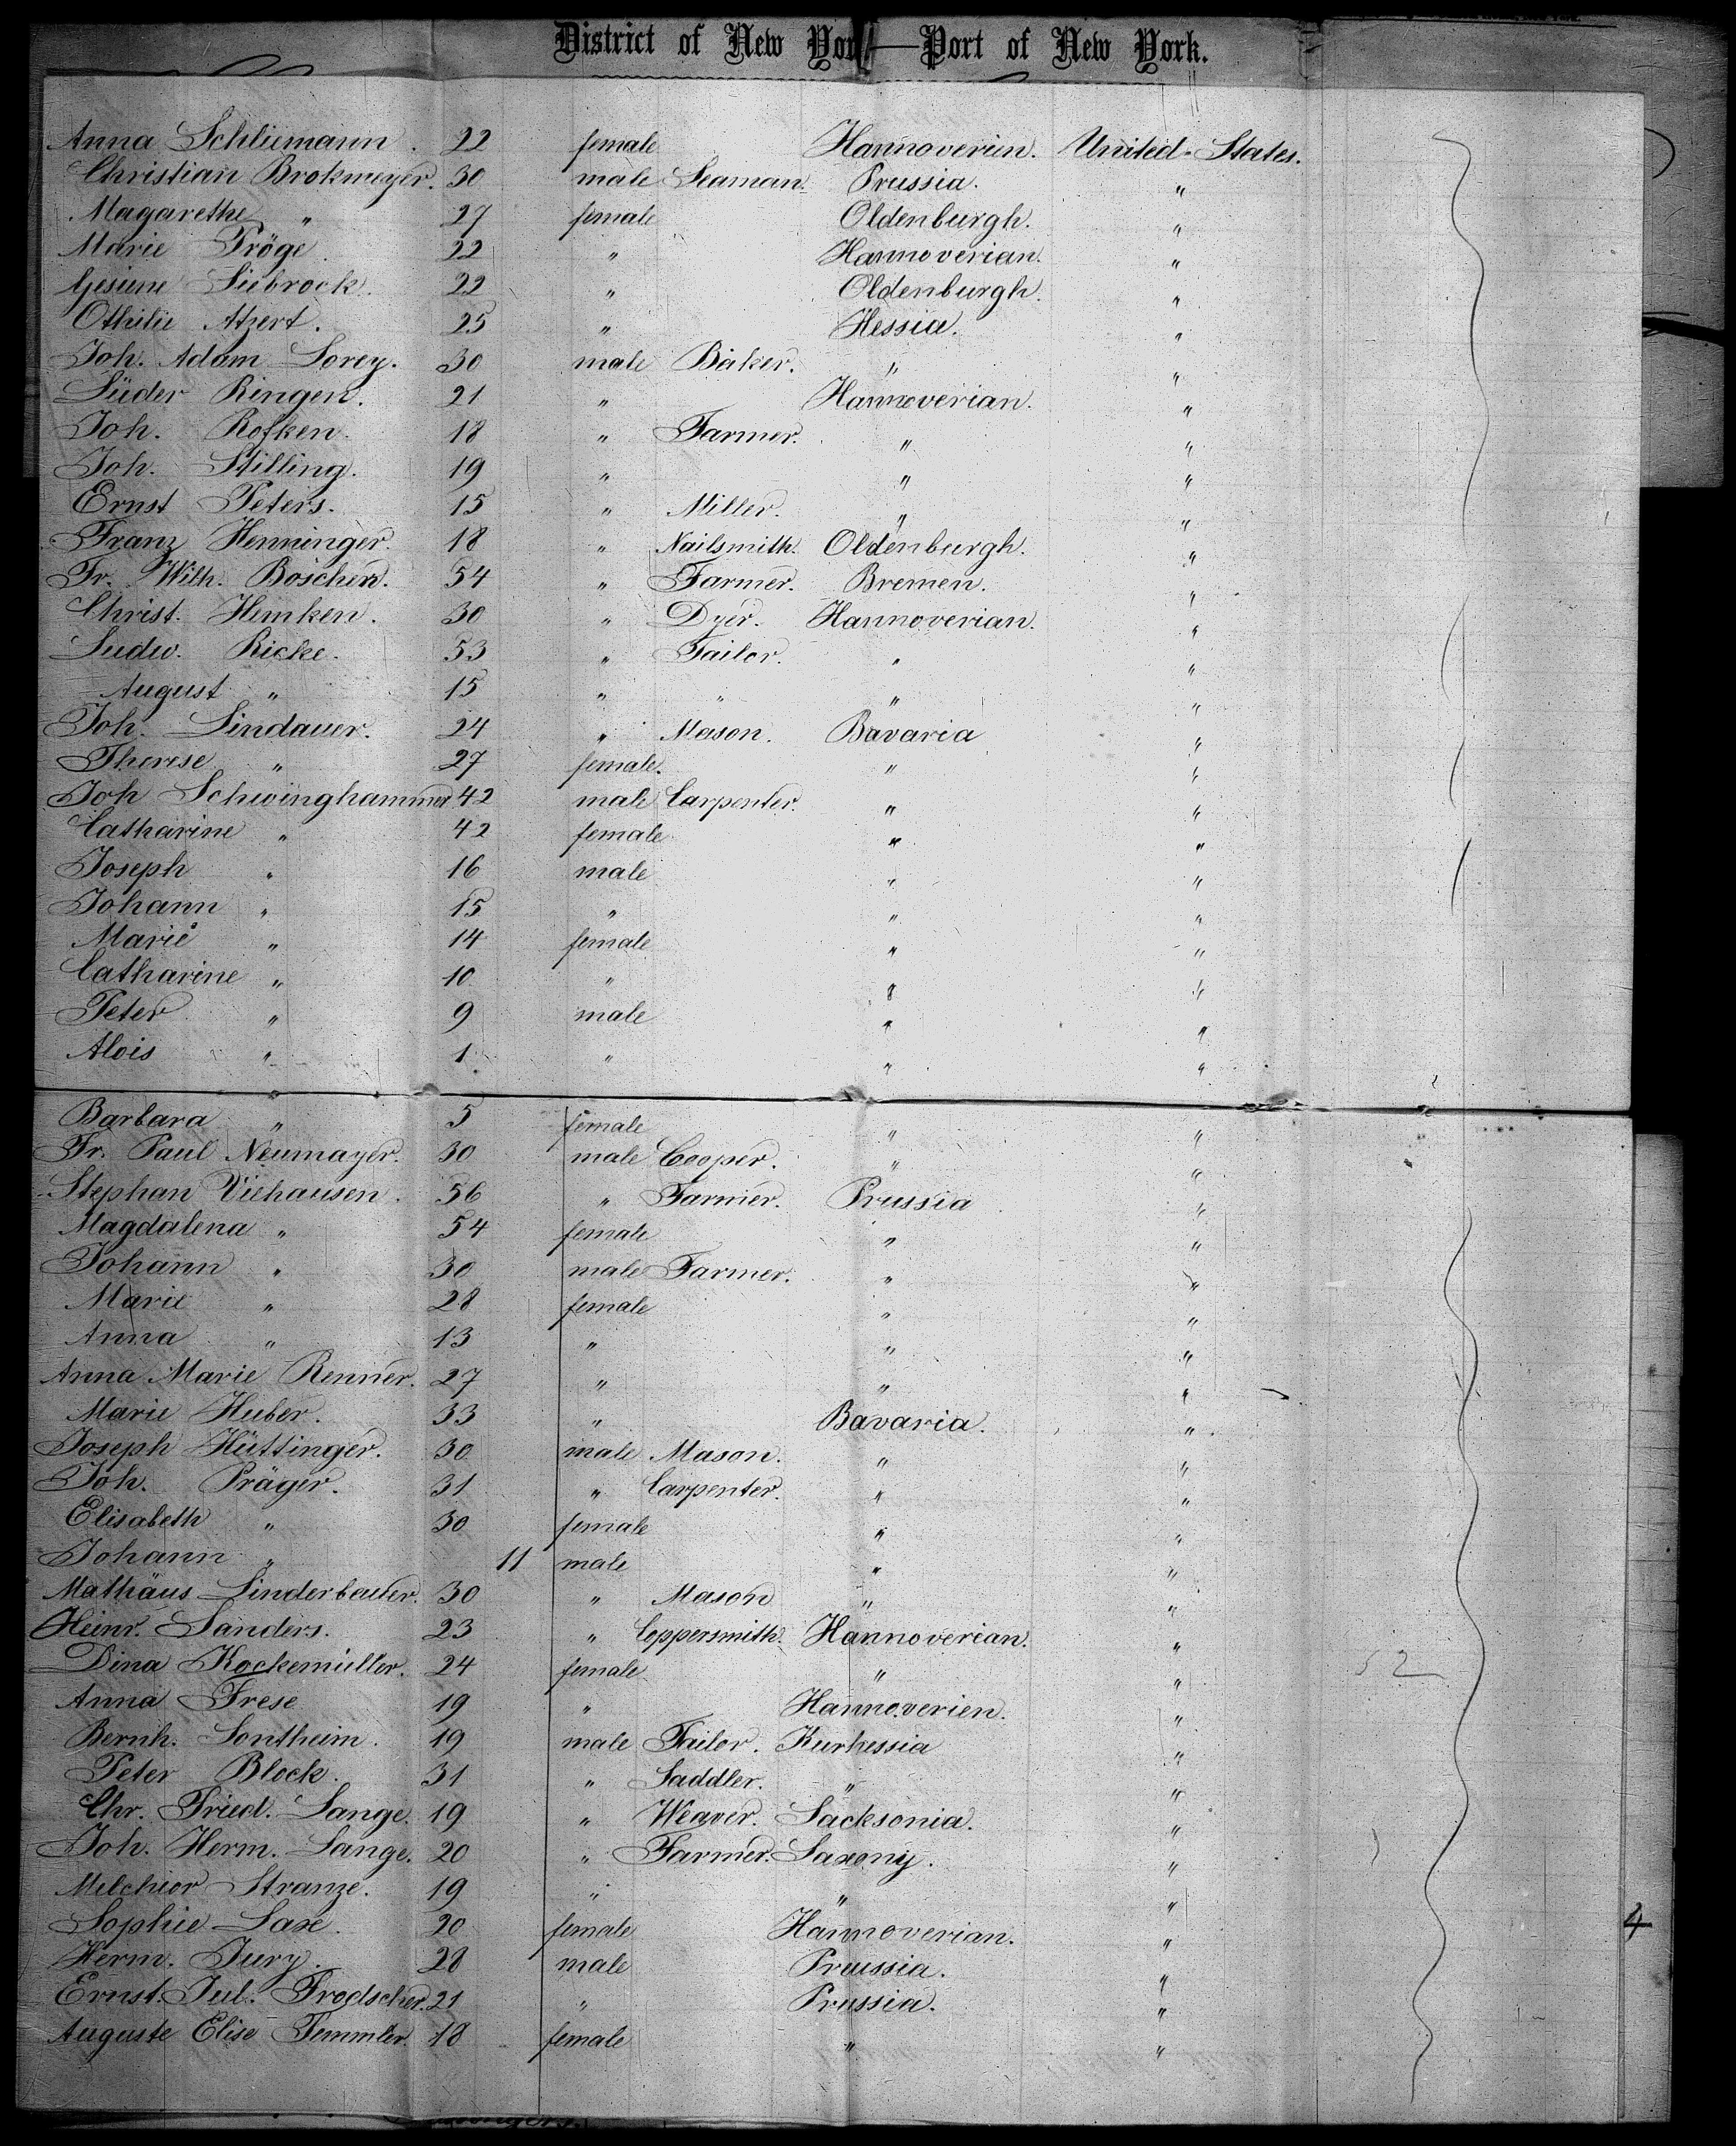 District of New York—Port of New York.
Anna Schliemann . 22 female Hannoverien. United States.
Christian Brokmeyer. 30 male Seaman. Prussia. "
Magarethe " 27 female Oldenburgh. "
Marie Pröge. 22 " Hannoverian. "
Gesiene Siebrock. 22 " Oldenburgh. "
Othilie Atzert. 25 " Hessia. "
Joh. Adam Lorey. 30 male Baker. " "
Lüder Ringen. 21 " Hannoverian. "
Joh. Rofken. 18 " Farmer. " "
Joh. Stilling. 19 " " "
Ernst Peters. 15 " Miller. " "
Franz Henninger. 18 " Nailsmith. Oldenburgh. "
Fr. Wilh. Boschen. 54 " Farmer. Bremen. "
Christ. Heinken. 30 " Dyer. Hannoverian. "
Ludw. Ricke. 53 " Tailor. " "
August " 15 " " " "
Joh. Lindauer. 24 " Mason. Bavaria "
Therese " 27 female. " "
Joh Schwinghammer 42 male Carpenter. " "
Catharine " 42 female " "
Joseph " 16 male " "
Johann " 15 " " "
Marie " 14 female " "
Catharine " 10 " " "
Peter " 9 male " "
Alois " 1. " " "
Barbara " 5 female " "
Fr. Paul Neumayer. 30 male Cooper. " "
Stephan Viehausen. 56 " Farmer. Prussia "
Magdalena " 54 female " "
Johann " 30 male Farmer. " "
Marie " 28 female " "
Anna " 13 " " "
Anna Marie Renner. 27 " " "
Marie Huber. 33 " Bavaria. "
Joseph Hüttinger. 30 male Mason. " "
Joh. Präger. 31 " Carpenter. " "
Elisabeth " 30 female " "
Johann " 11 male " "
Mathäus Linderbauer. 30 " Mason " "
Heinr. Sanders. 23 " Coppersmith. Hannoverian. "
Dina Kockemüller. 24 female " " 52
Anna Frese 19 " Hannoverien. "
Bernh. Sontheim. 19 male Tailor. Kurhessia "
Peter Block. 31 " Saddler. " "
Chr. Fried. Lange. 19 " Weaver. Sacksonia. "
Joh. Herm. Lange. 20 " Farmer. Saxony. "
Melchior Stranze. 19 " " "
Sophie Saxe. 20 female Hannoverian. " 4
Herm. Jury. 28 male Preussia. "
Ernst. Jul. Frodscher. 21 " Prussia. "
Auguste Elise Temmler. 18 female " "